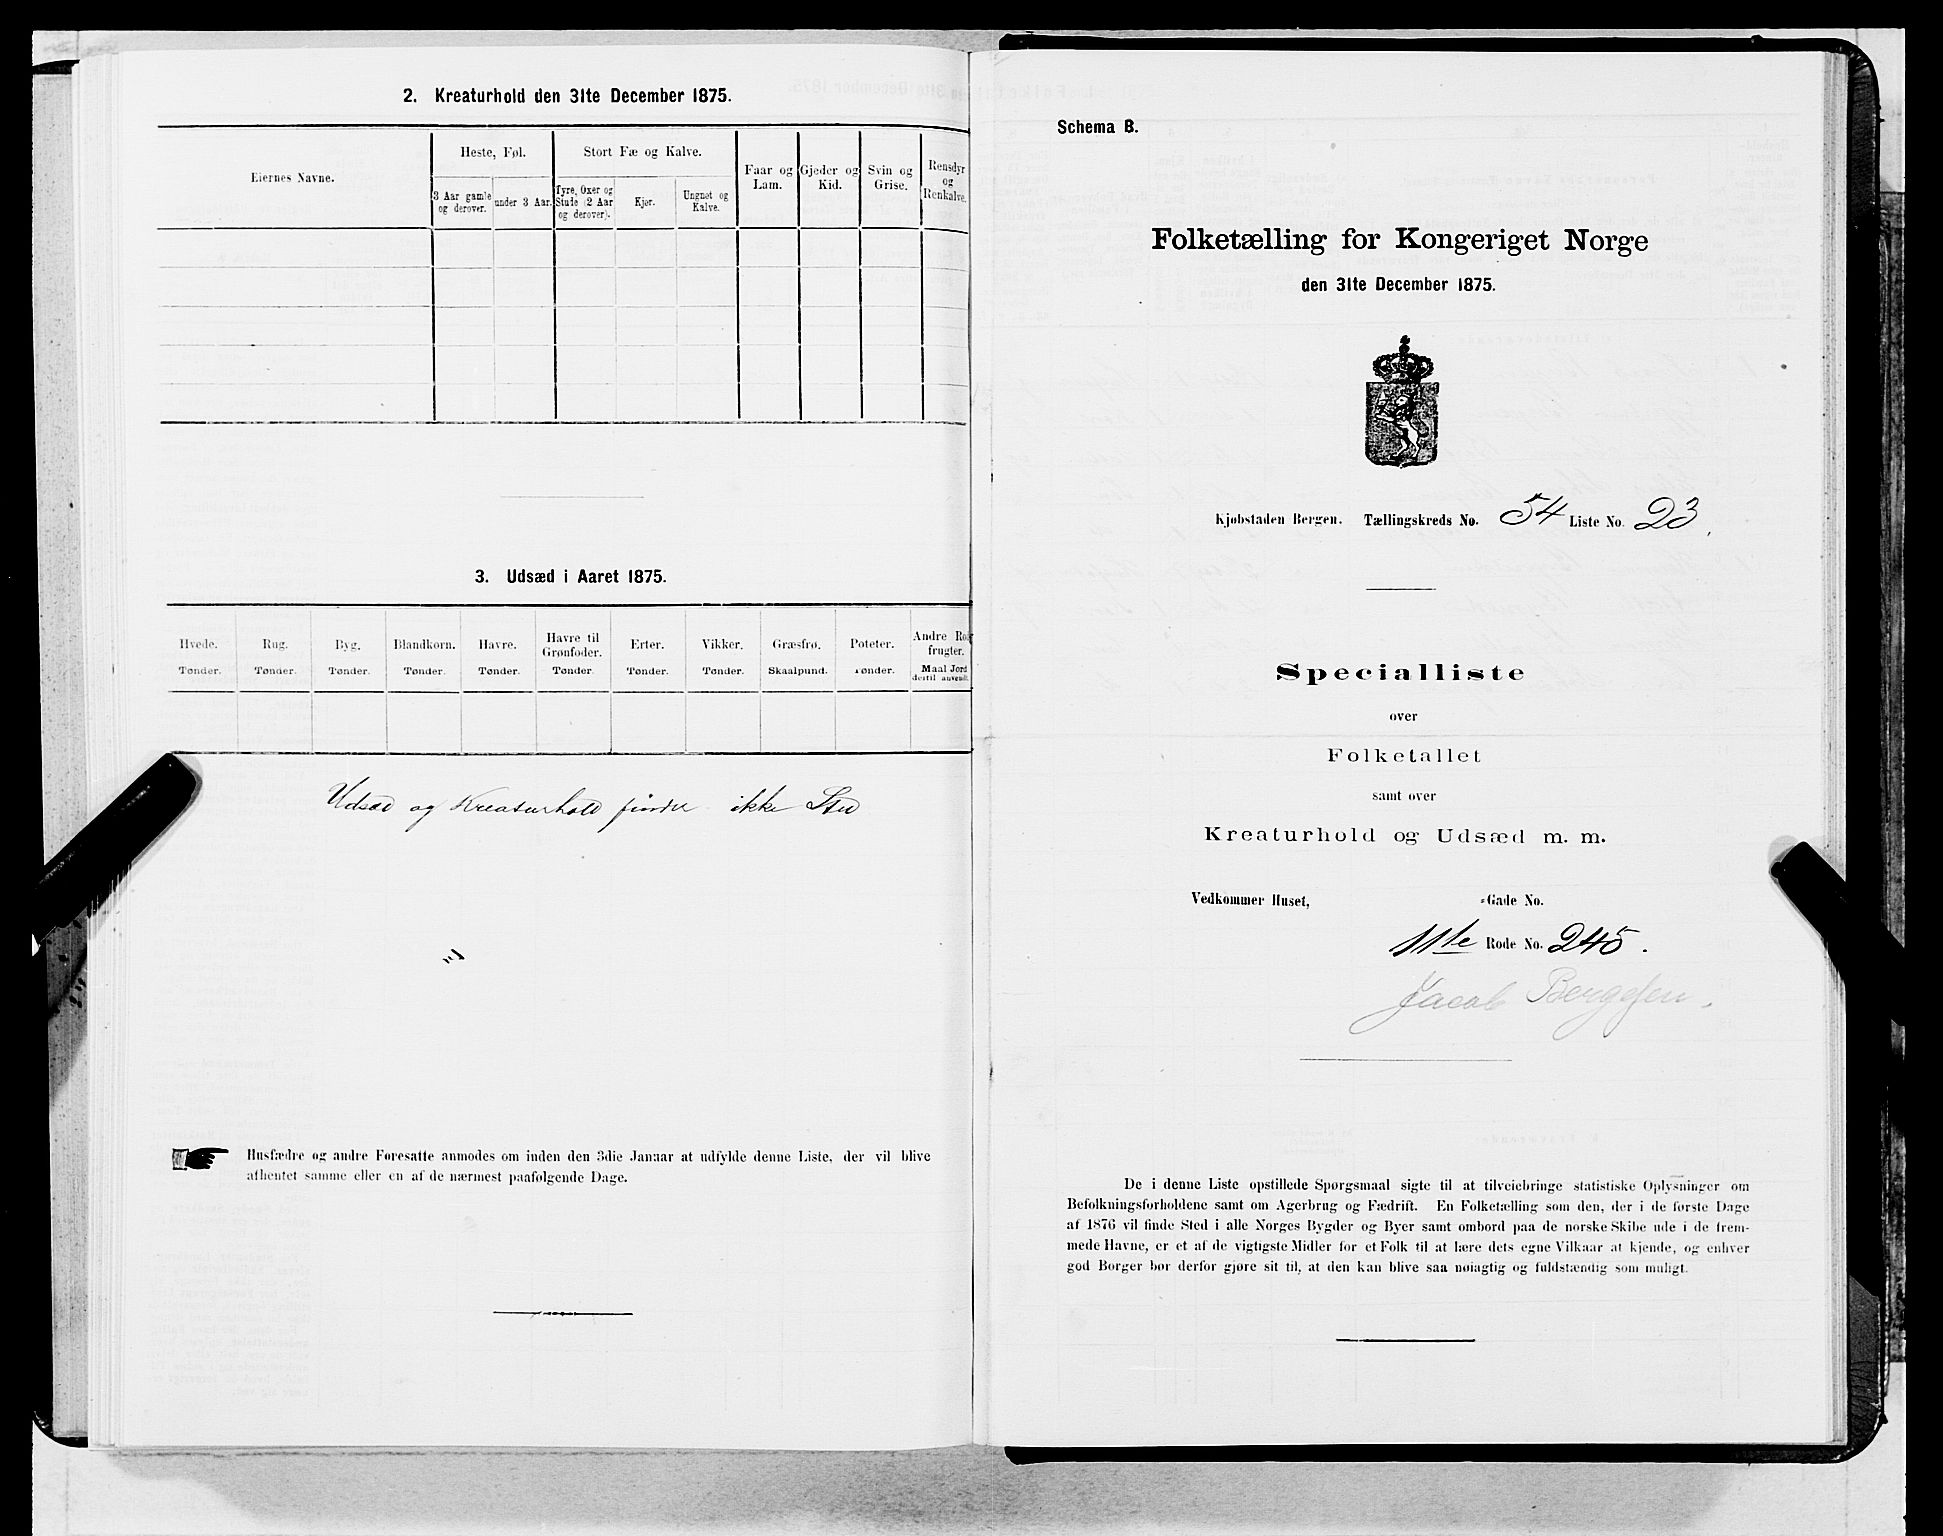 2. Kreaturhold den 31te December 1875.
Eiernes Navne.
Heste, Føl.
Stort Fæ og Kalve.
Faar og
Lam.
Gjeder og
Kid.
Svin og
Grise.
Rensdyr
og
Renkalve.
3 Aar gamle
og derover.
under 3 Aar.
Tyre, Oxer og
Stude (2 Aar
og derover).
Kjør.
Ungnøt og
Kalve.
3. Udsæd i Aaret 1875.
Hvede.
Tønder.
Rug.
Tønder.
Byg.
Tønder.
Blandkorn.
Tønder.
Havre.
Tønder.
Havre til
Grønfoder.
Tønder.
Erter.
Tønder.
Vikker.
Tønder.
Græsfrø.
Skaalpund.
Poteter.
Tønder.
Andre Rod-
frugter.
Maal Jord
dertil anvendt.
Udsæd og Kreaturhold finder ikke Sted
Husfædre og andre Foresatte anmodes om inden den 3die Januar at udfylde denne Liste, der vil blive
afhentet samme eller en af de nærmest paafølgende Dage.
Schema B.
Folketælling for Kongeriget Norge
den 31te December 1875.
Kjøbstaden Bergen. Tællingskreds No. 54 Liste No. 23.
Specialliste
over
Folketallet
samt over
Kreaturhold og Udsæd m. m.
Vedkommer Huset, -Gade No.
11te Rode No. 245.
Jacob Berggsen.
De i denne Liste opstillede Spørgsmaal sigte til at tilveiebringe statistiske Oplysninger om
Befolkningsforholdene samt om Agerbrug og Fædrift. En Folketælling som den, der i de første Dage
af 1876 vil finde Sted i alle Norges Bygder og Byer samt ombord paa de norske Skibe ude i de frem-
mede Havne, er et af de vigtigste Midler for et Folk til at lære dets egne Vilkaar at kjende, og enhver
god Borger bør derfor gjøre sit til, at den kan blive saa nøiagtig og fuldstændig som muligt.